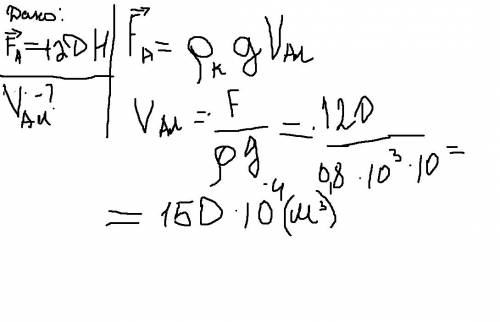 Дано:
F⃗_A = 120 Н
V_Ал - ?
F⃗_A = ρ_к g V_Ал
V_Ал = F / ρg = 120 / 0,8 · 10³ · 10 =
= 150 · 10⁻⁴ (м³)